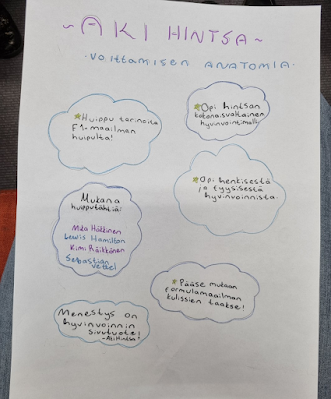 ~AKI HINTSA~
·VOITTAMISEN ANATOMIA·
Huippu tarinoita
F1-maailman
huipulta!
Opi hintsan
kokonaisvaltainen
hyvinvointimalli
Opi henkisestä
ja fyysisestä
hyvinvoinnista.
Mukana
huipputähtiä:
Mika Häkkinen
Lewis Hamilton
Kimi Räikkönen
Sebastian
Vettel
Pääse mukaan
formulamaailman
kulissien taakse!
Menestys on
hyvinvoinnin
sivutuote!
-Aki Hintsa!